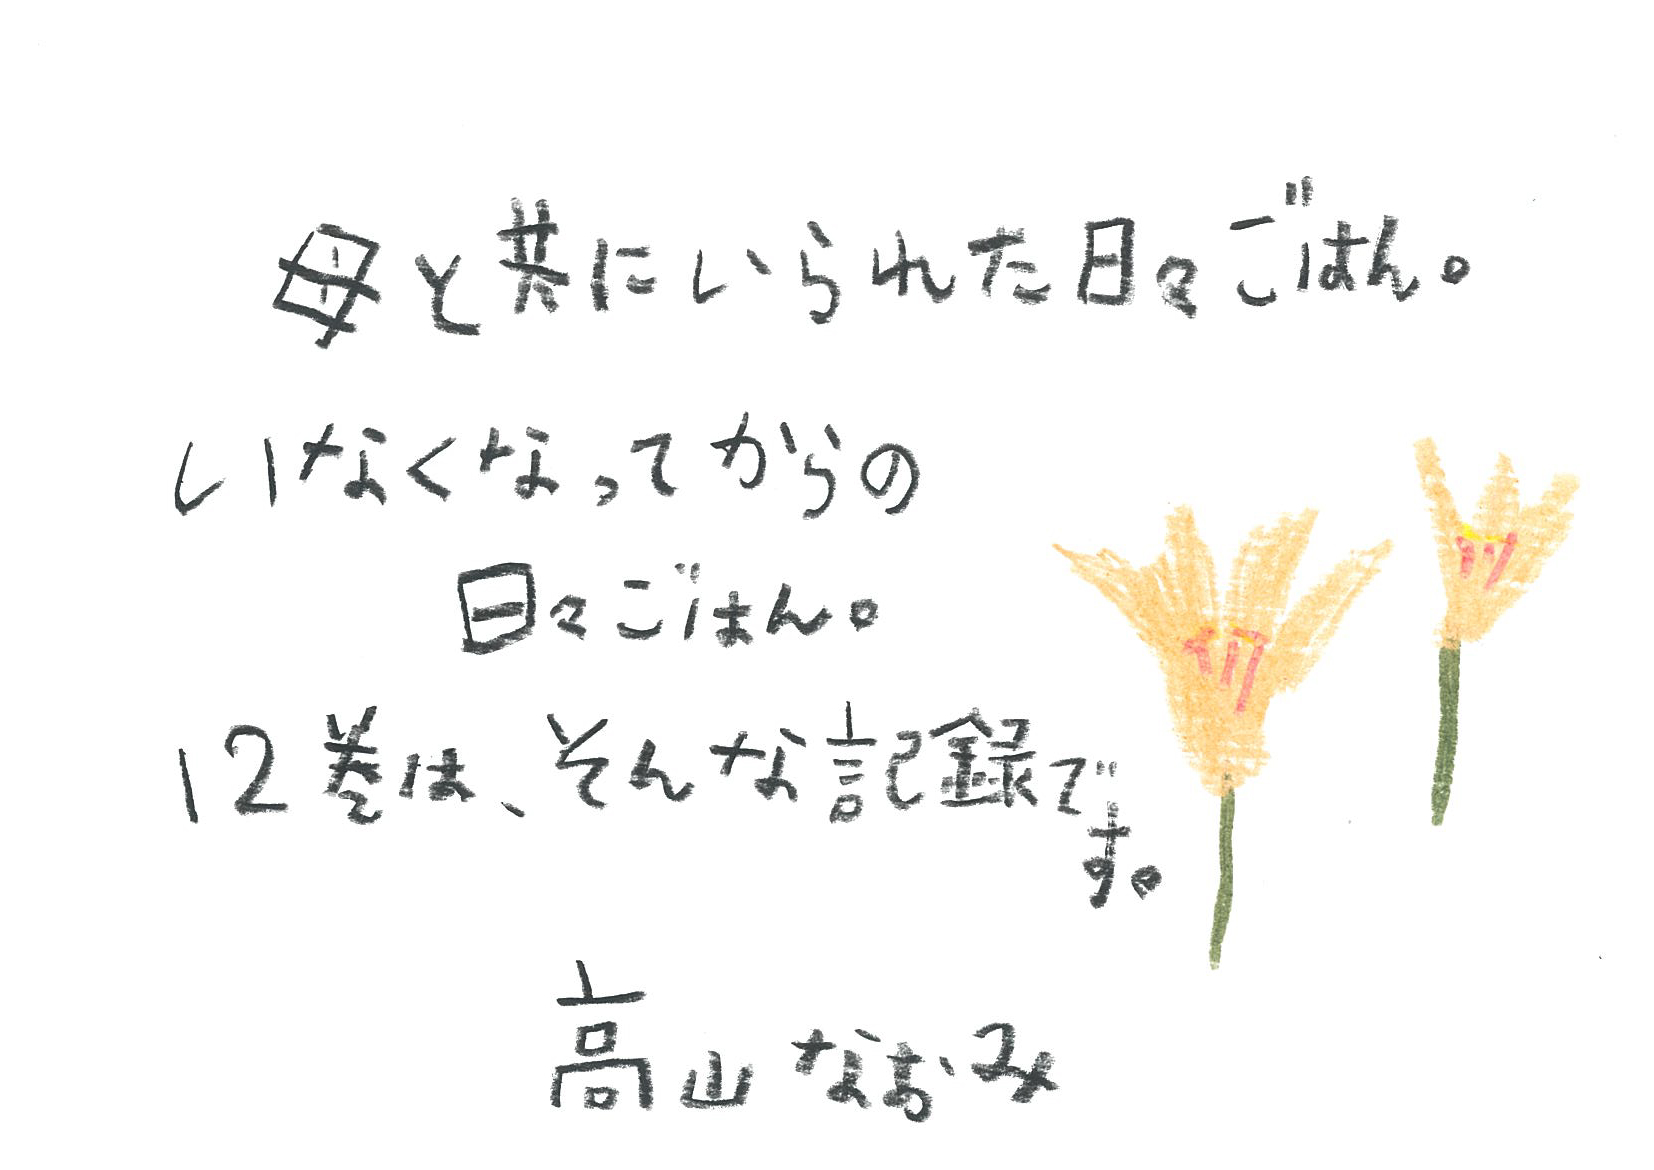 母と共にいられた日々ごはん。
いなくなってからの
日々ごはん。
12巻は、そんな記録で
す。
高山なおみ